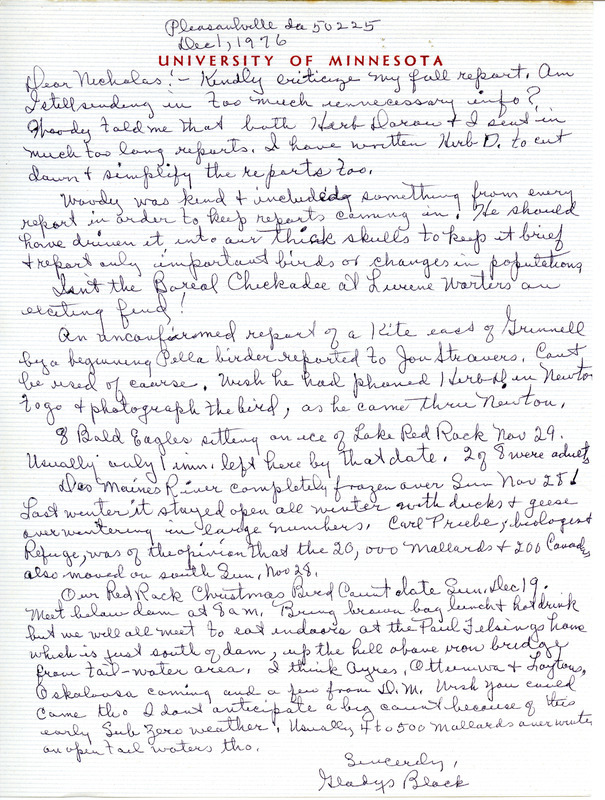 Pleasantville Ia 50225
Dec 1, 1976
UNIVERSITY OF MINNESOTA
Dear Nicholas:- Kindly criticize my fall report. Am
I still sending in too much unnecessary info?
Woody told me that both Herb Dorow & I sent in
much too long reports. I have written Herb D. to cut
down & simplify the reports too.
Woody was kind & included something from every
report in order to keep reports coming in. He should
have driven it into our thick skulls to keep it brief
& report only important birds or changes in populations
Isn't the Boreal Chickadee at Lurene Worters an
exciting find!
An unconfirmed report of a Kite east of Grinnell
by a beginning Pella birder reported to Jon Stravers. Cant
be used of course. Wish he had phoned Herb D. in Newton
to go & photograph the bird, as he came thru Newton.
8 Bald Eagles sitting on ice of Lake Red Rock Nov 29.
Usually only 1 imm. left here by that date. 2 of 8 were adults
Des Moines River completely frozen over Sun Nov 28!
Last winter it stayed open all winter with ducks & geese
overwintering in large numbers. Carl Priebe, biologist
Refuge, was of the opinion that the 20,000 mallards & 200 Canadas
also moved on south Sun. Nov 28.
Our Red Rock Christmas Bird Count date Sun. Dec 19.
Meet below dam at 8 am. Bring brown bag lunch & hot drink
but we will all meet to eat indoors at the Paul Felsings home
which is just south of dam, up the hill above iron bridge
from tail-water area. I think Ayres, Ottumwa & Laytons,
Oskaloosa coming and a few from D.M. Wish you could
come tho I dont anticipate a big count because of this
early Sub Zero weather. Usually 4 to 500 mallards over winter
on open tail waters tho.
Sincerely,
Gladys Black